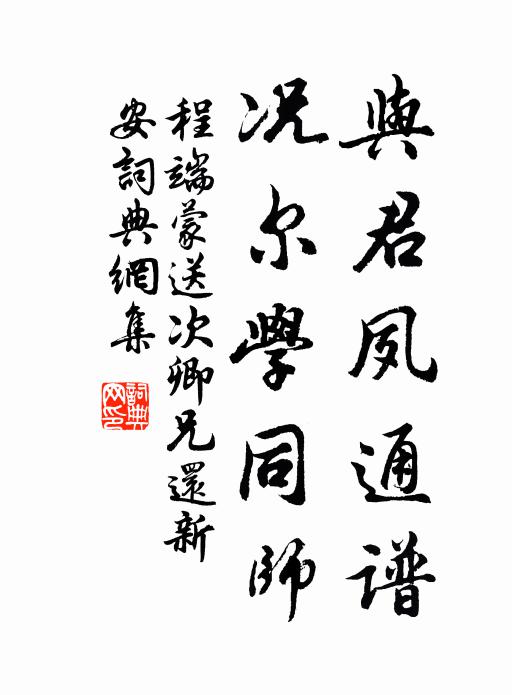 與君夙通譜
况尔學同師
程端蒙送次卿兄還新
安詞典網集
詞典網印